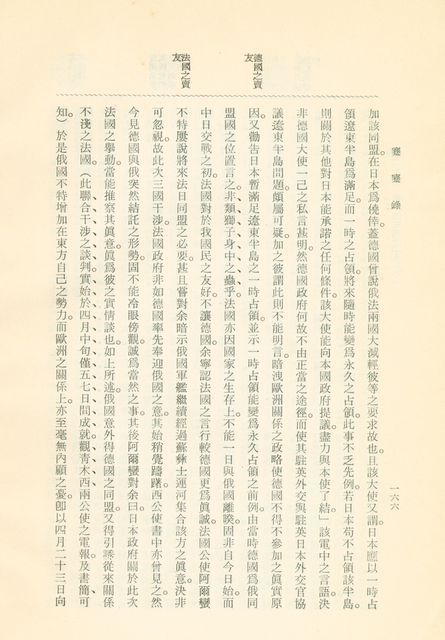 蹇蹇錄
一六六
德國之賣友
法國之賣友
加該同盟。在日本爲僥倖。蓋德國曾說俄法兩國大減輕彼等之要求故也。且該大使又謂。日本應以一時占
領遼東半島爲滿足。而一時之占領。將來隨時能變爲永久之占領。此事不乏先例。若日本苟不占領該半島。
則關於其他對日本能承諾之任何條件。該大使能向本國政府提議盡力與本使了結」該電中之言語。決
非德國大使一己之私言甚明。然德國政府何故不由正當之途徑。而使其駐英外交與駐英日本外官協
議遼東半島問題。頗屬可疑。加之彼謂此則不能明言。暗洩歐洲關係之政略。使德國不得不參加之眞實原
因。又勸告日本暫滿足遼東半島之一時占領。並示一時占領能變爲永久占領之前例。由當時德國爲俄同
盟國之位置言之。非類獅子身中之蟲乎。法國亦因國家之生存上。不能一日與俄國離睽。固非自今日始。而
中日交戰之初。法國對於我國民之友好。不讓德國。余寧認法國之言行。較德國更爲眞誠。法國公使阿爾孌
不特屢說將來法日同盟之必要。甚且嘗對余暗示俄國軍艦繼續經過蘇彝士運河集合該方之眞意。決非
可忽視。故此次三國干涉。法國政府非如德國率先奉迎俄國之意。其始稍覺躊躇。西公使書中亦曾見之。然
今見德國與俄突然結託之形勢。固不能冷眼傍觀。誠爲當然之事。其後阿爾孌對余曰。日本政府關於此次
法國之舉動。當能推察其眞意。眞爲彼之實情談也。如上所述。俄國意外得德國之同盟。又得引誘從來關係
不淺之法國。（此聯合干涉之談判。實始於四月中旬。僅五七日間成就。觀青木西兩公使之電報及書簡。可
知）於是俄國不特增加在東方自己之勢力。而歐洲之關係上。亦至毫無內顧之憂。卽以四月二十三日向